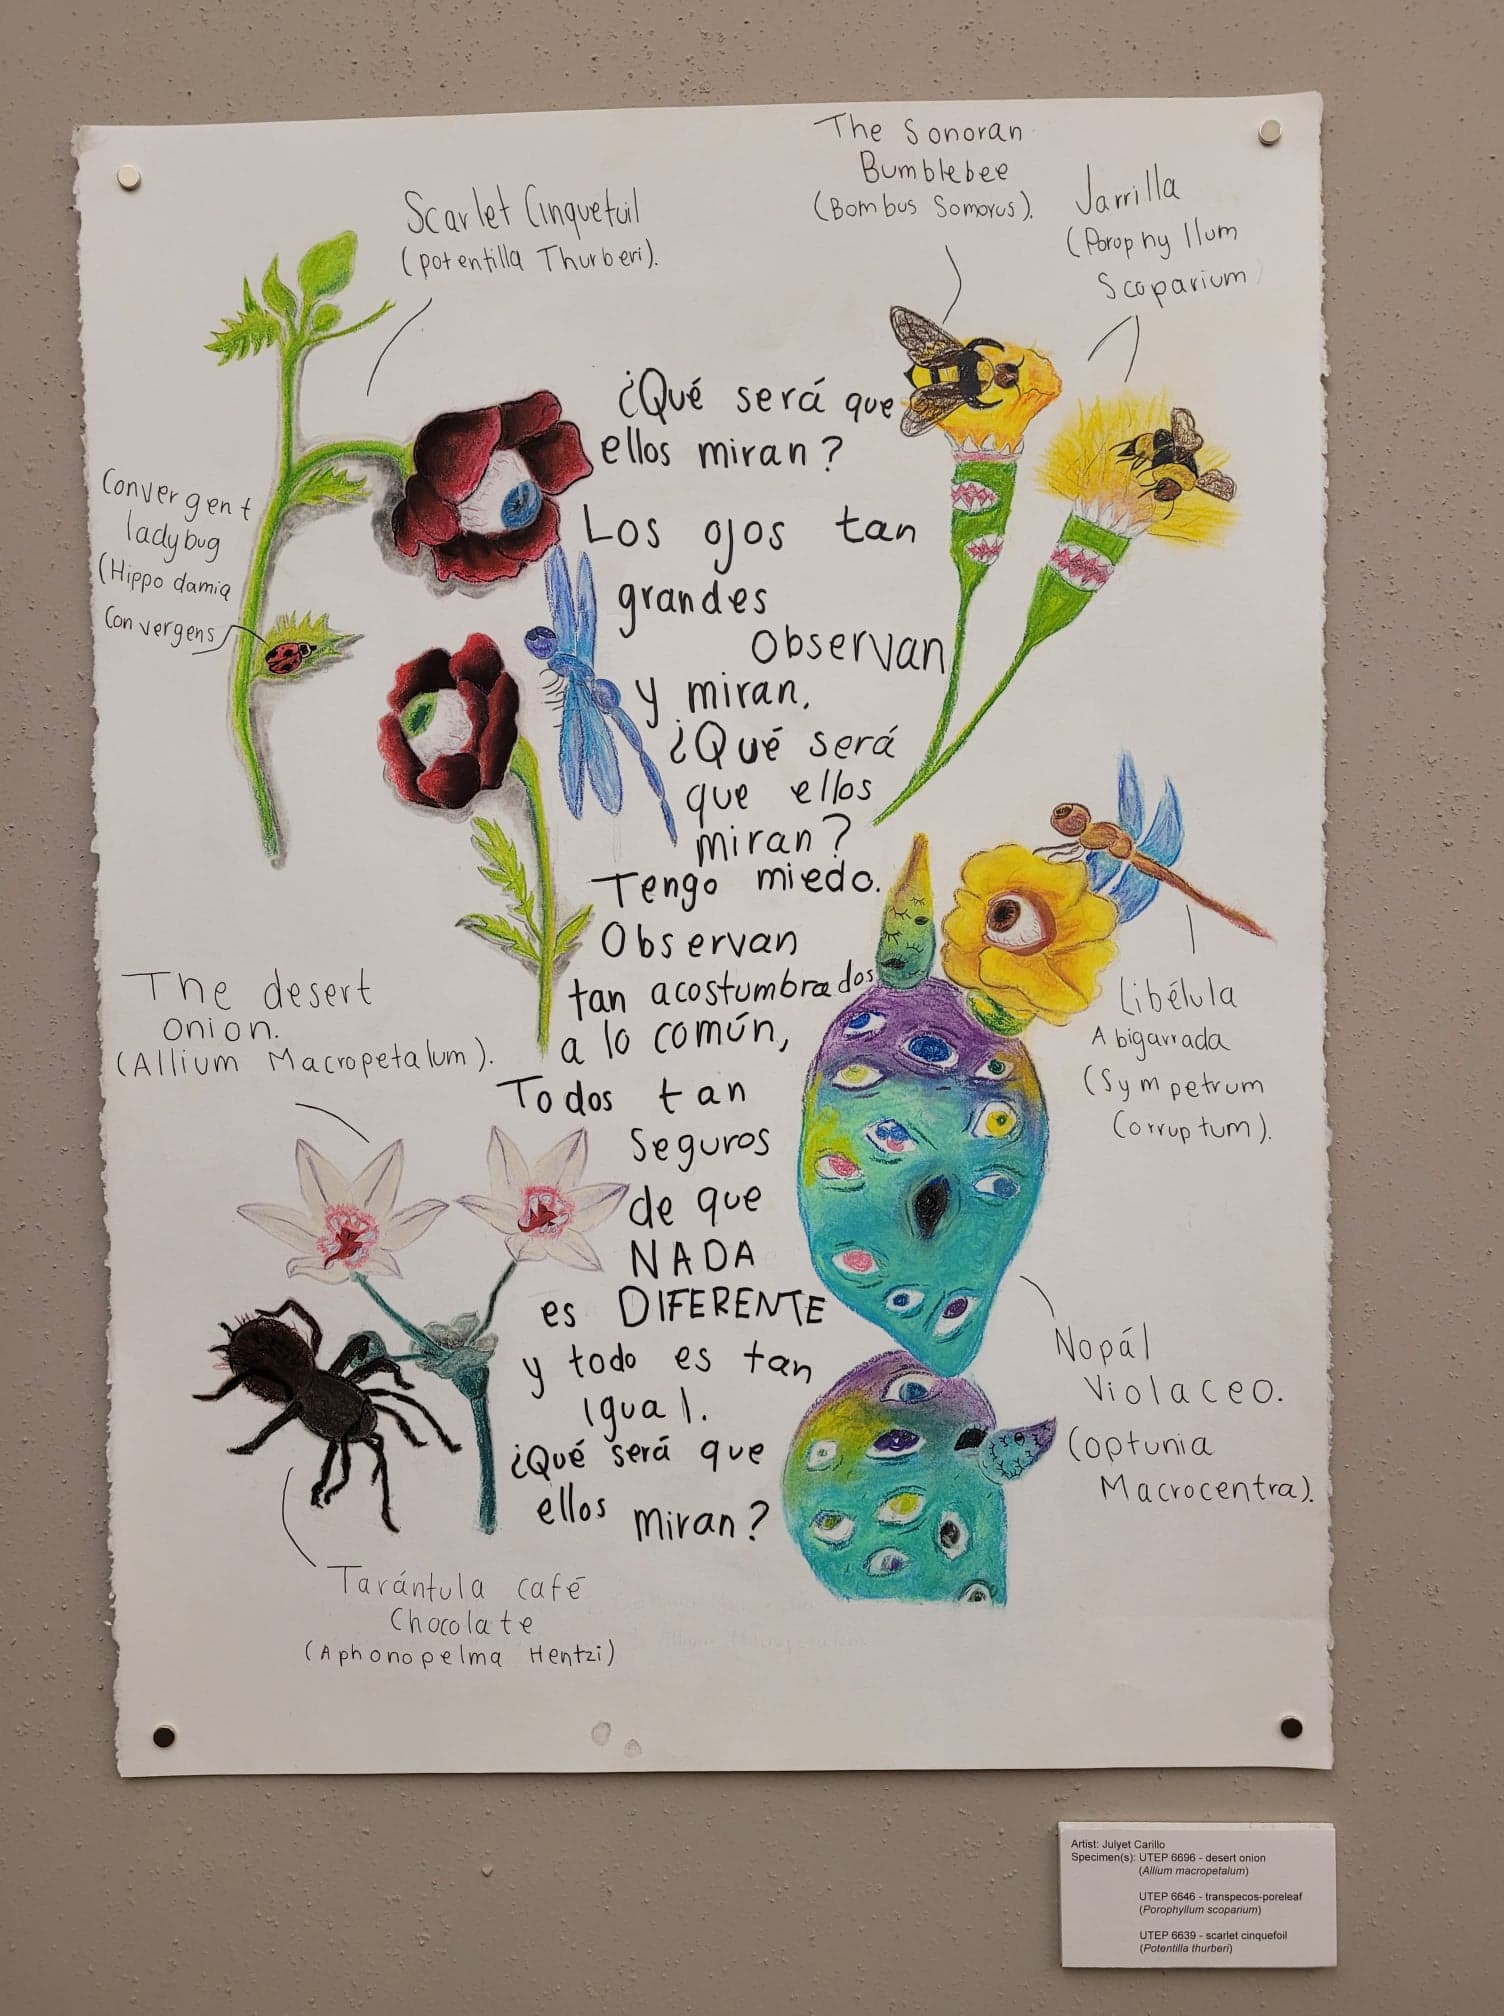 The Sonoran
Bumblebee
(Bombus Somorus).
Jarrilla
(Porophyllum
Scoparium)
Scarlet Cinquefuil
(potentilla Thurberi).
Convergent
ladybug
(Hippodamia
Convergens
¿Qué será que
ellos miran?
Los ojos tan
grandes
Observan
y miran.
¿Qué será
que ellos
miran?
Tengo miedo.
Observan
tan acostumbrados
a lo común,
Todos tan
seguros
de que
NADA
es DIFERENTE
y todo es tan
igual.
¿Qué será que
ellos miran?
The desert
onion.
(Allium Macropetalum).
Libélula
Abigarrada
(Sympetrum
Corruptum).
Nopál
Violaceo.
(optunia
Macrocentra).
Tarántula café
Chocolate
(Aphonopelma Hentzi)
Artist: Julyet Carillo
Specimen(s): UTEP 6696 - desert onion
(Allium macropetalum)
UTEP 6646 - transpecos-poreleaf
(Porophyllum scoparium)
UTEP 6639 - scarlet cinquefoil
(Potentilla thurberi)